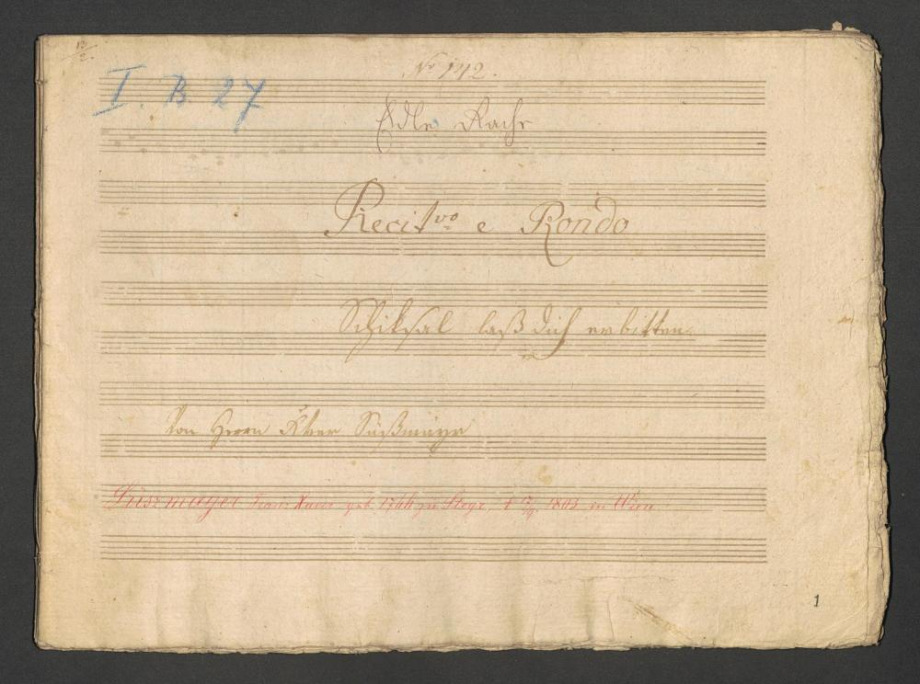 No 142.
I. B 27
Edle Rache
Recit.vo e Rondo
Schiksal laß dich erbitten
Von Herrn Xaver Süßmayr
Süssmayer Franz Xaver geb. 1766 zu Steyr. † 17/9 1803 in Wien
1